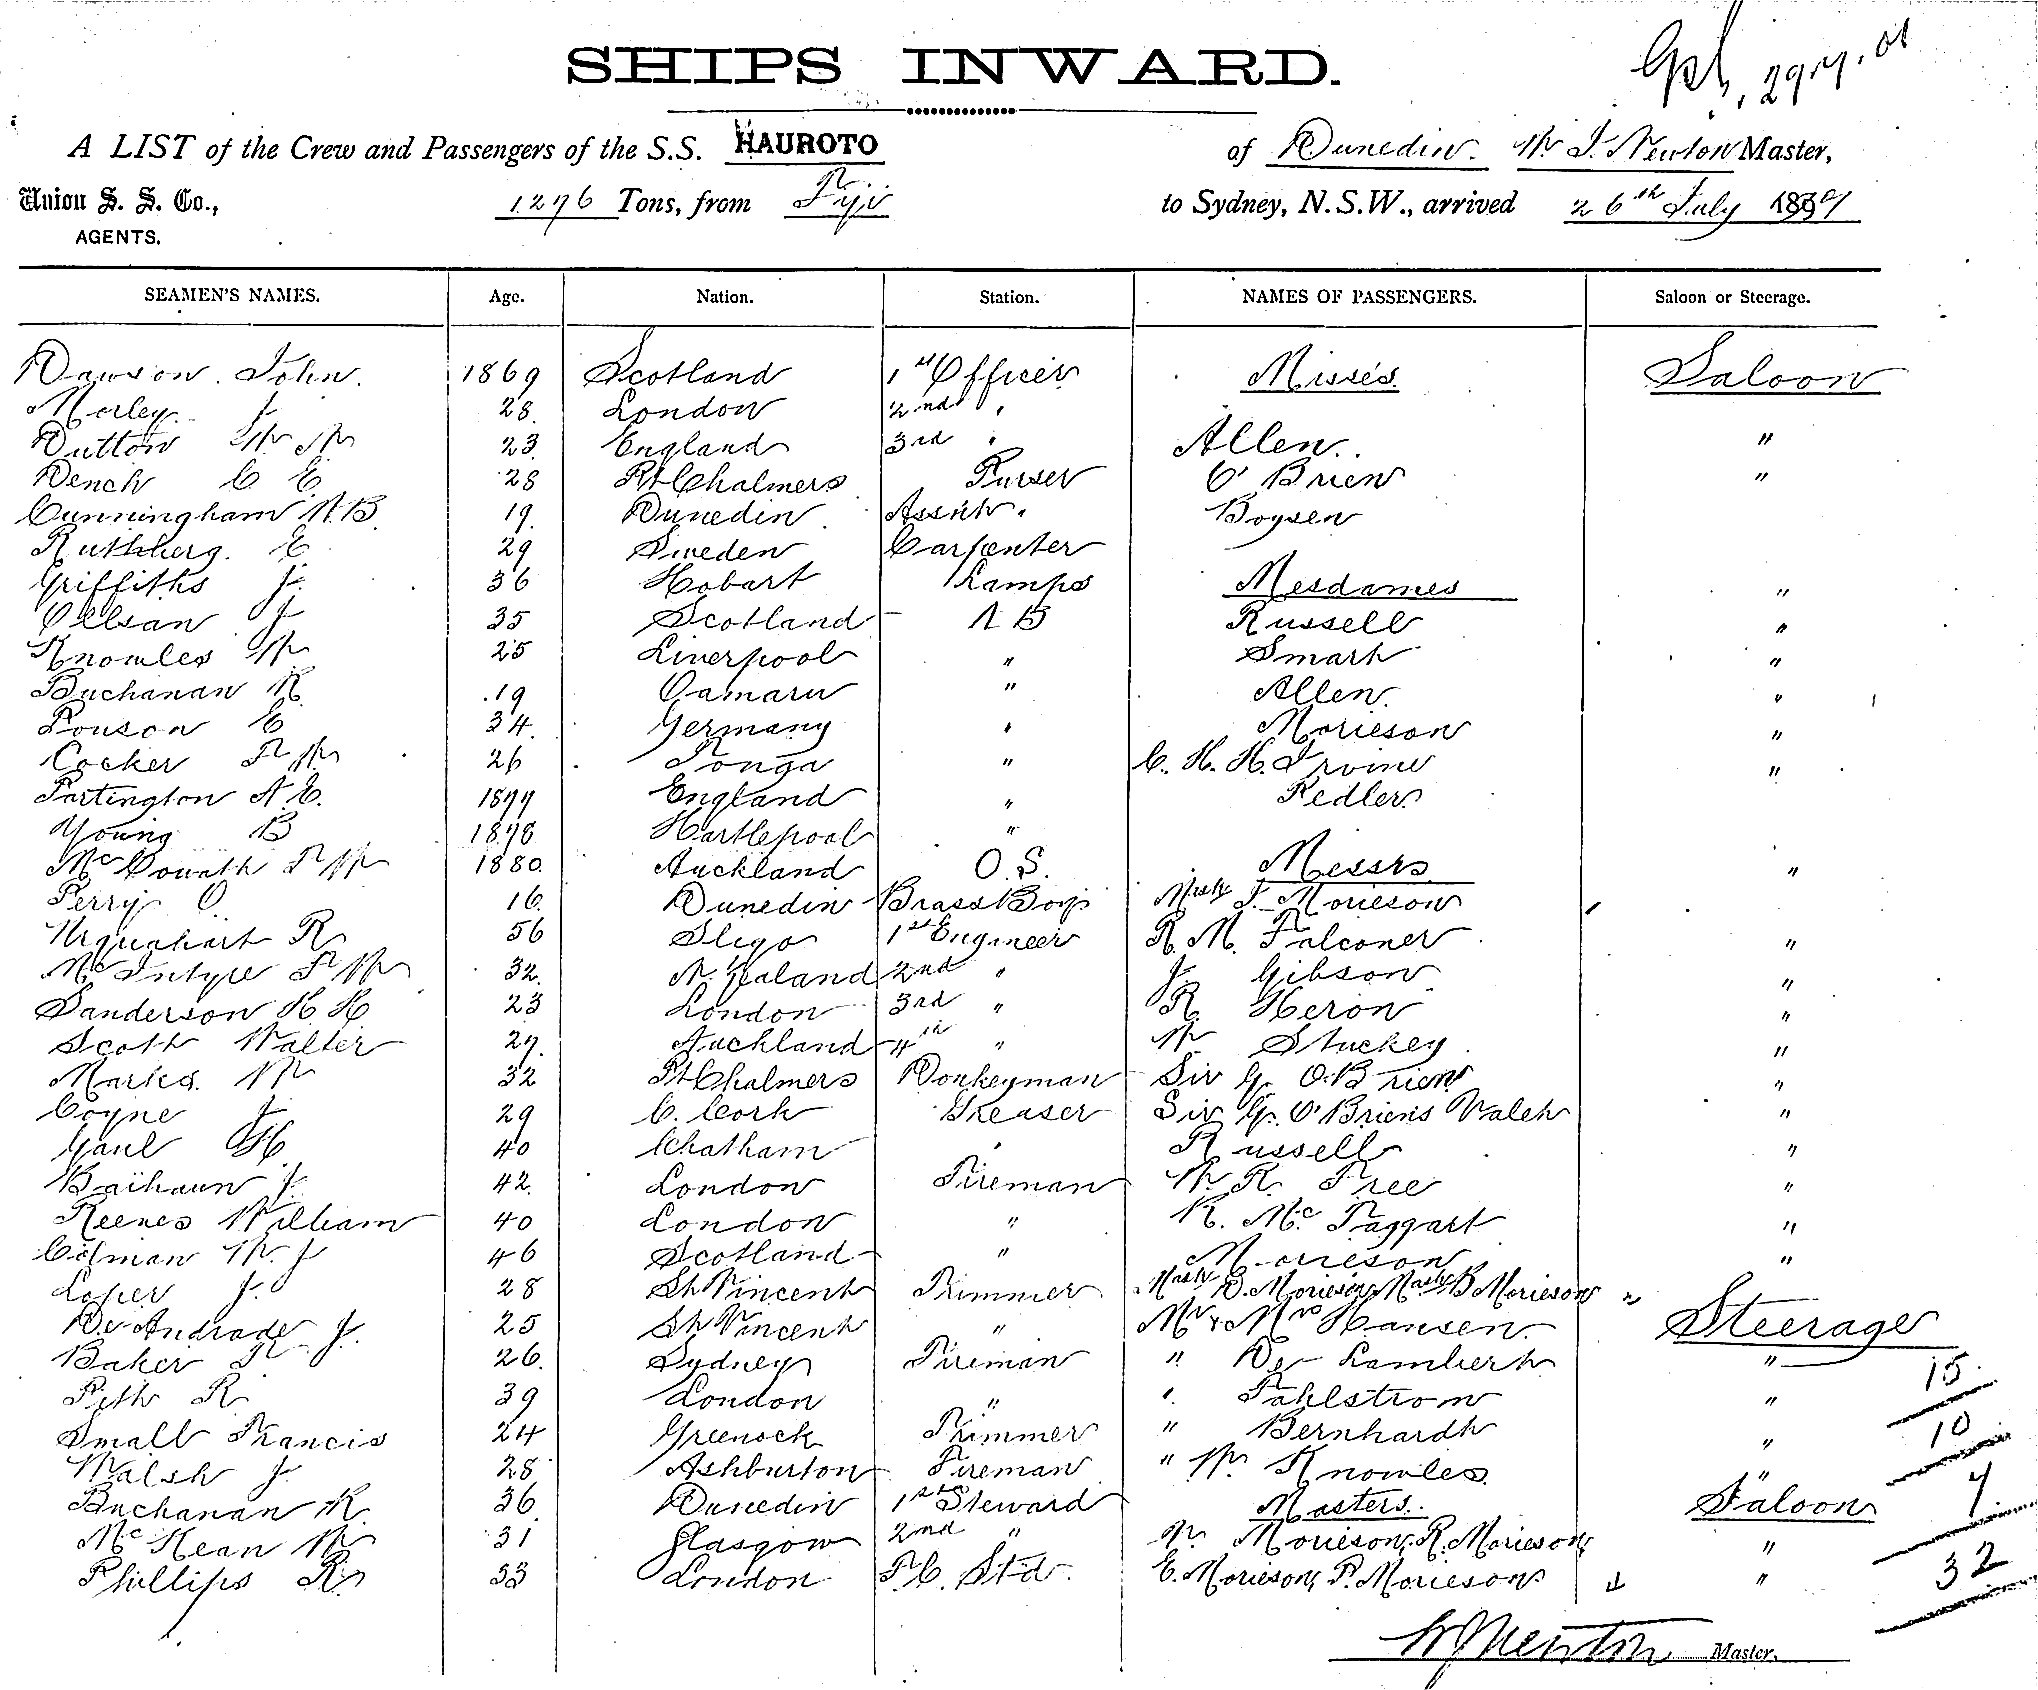 SHIPS INWARD.
A LIST of the Crew and Passengers of the S.S. HAUROTO of Dunedin. W. J. Newton Master,
Union S. S. Co., 1276 Tons, from Fiji to Sydney, N.S.W., arrived 26th July
AGENTS.
SEAMEN'S NAMES. Age. Nation. Station. NAMES OF PASSENGERS. Saloon or Steerage.
Dawson. John. 1869 Scotland 1st Officer Misses Saloon
Morley J 28. London 2nd "
Dutton W W 23. England 3rd " Allen. "
Dench C E. 28 Pt Chalmers Purser O'Brien "
Cunningham A.B. 19. Dunedin Assist. Boysen
Ruthberg. E 29 Sweden Carpenter
Griffiths J. 36 Hobart Lamps Mesdames "
Ollsan J 35 Scotland A B Russell "
Knowles W 25 Liverpool " Smart "
Buchanan R. 19 Oamaru " Allen. "
Pouson E 34. Germany " Morieson "
Cocker F W 26 Tonga " C. H. H. Irvine "
Partington A E. 1877 England " Redler
Young B 1878 Hartlepool "
F W 1880. Auckland O.S. Messrs "
Perry O 16. Dunedin Brass Boy Mastr J. Morieson
Urquahart R 56 Sligo 1st Engineer R. M. Falconer "
McIntyre F W 32. N. Zealand 2nd " J. Gibson "
Sanderson H H 23 London 3rd " R. Heron "
Scott Walter 27. Auckland 4th " W Stuckey "
Marks. W 32 Pt Chalmers Donkeyman Sir G. O'Brien "
Coyne J 29 C. Cork Greaser Sir G. O'Briens Valet "
Gaul H 40 Chatham " Russell "
J. 42. London Fireman W. R. Free "
Reenes William 40 London " R. McTaggart "
Colman W. J 46 Scotland " Morieson "
Loper J. 28 St Vincent Trimmer Mastr D. Morieson, Mastr B Morieson "
De Andrade J. 25 St Vincent " Mr & Mrs Hansen Steerage
Baker R 26. Sydney Fireman " De Lambert " 15.
Pith R 39 London " " Fahlstrom "
Small Francis 24 Greenock Trimmer " Bernhardt " 10
Walsh J 28 Ashburton Fireman " W. Knowles "
Buchanan R. 36 Dunedin 1st Steward Masters. Saloon 7
McKean W 31 Glasgow 2nd " W. Morieson, R. Morieson, "
Phillips R 53 London F.C. Std. E. Morieson, P. Morieson " 32
W J Newton Master.